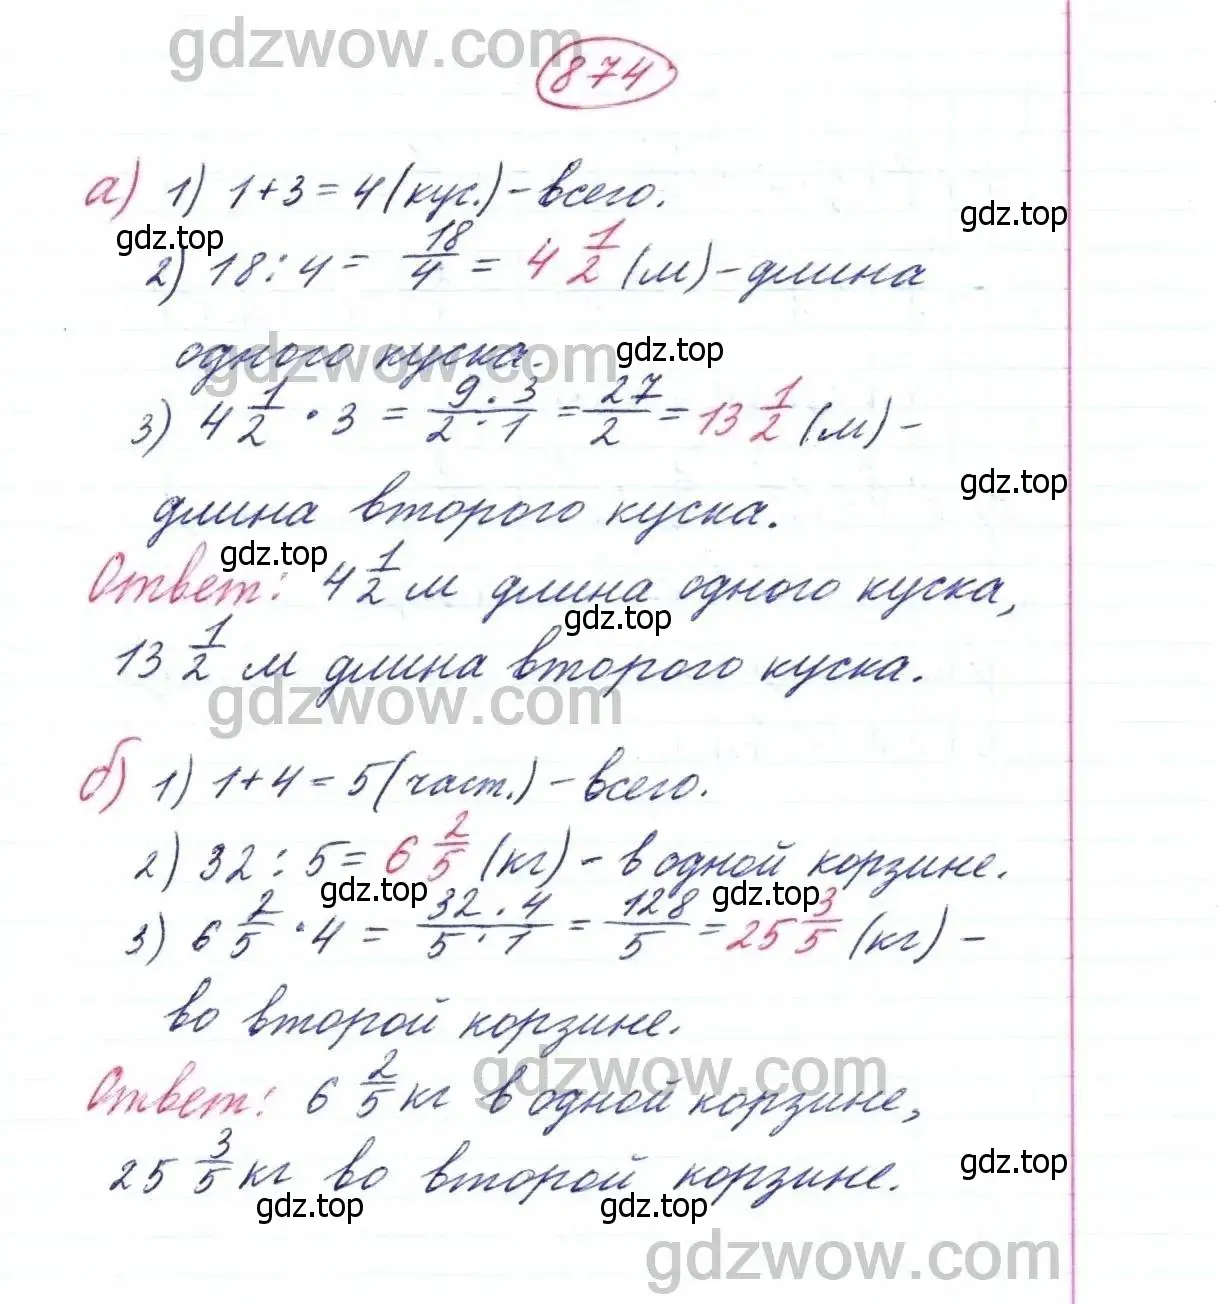 gdzwow.com
874
а) 1) 1+3=4 (кус.) - всего.
gdz.top
gdz.top
2) 18:4 = 18/4 = 4 1/2 (м) - длина
одного куска.
gdzwow.com
gdz.top
3) 4 1/2 · 3 = 9·3/2·1 = 27/2 = 13 1/2 (м) -
gdz.top
длина второго куска.
gdz.top
Ответ: 4 1/2 м длина одного куска,
gdz.top
13 1/2 м длина второго куска.
gdzwow.com
б) 1) 1+4=5 (част.) - всего.
2) 32 : 5 = 6 2/5 (кг) - в одной корзине.
gdz.top
gdz.top
3) 6 2/5 · 4 = 32·4/5·1 = 128/5 = 25 3/5 (кг) -
во второй корзине.
gdzwow.com
Ответ: 6 2/5 кг в одной корзине,
25 3/5 кг во второй корзине.
gdz.top
gdz.top
gdz.top
gdzwow.com